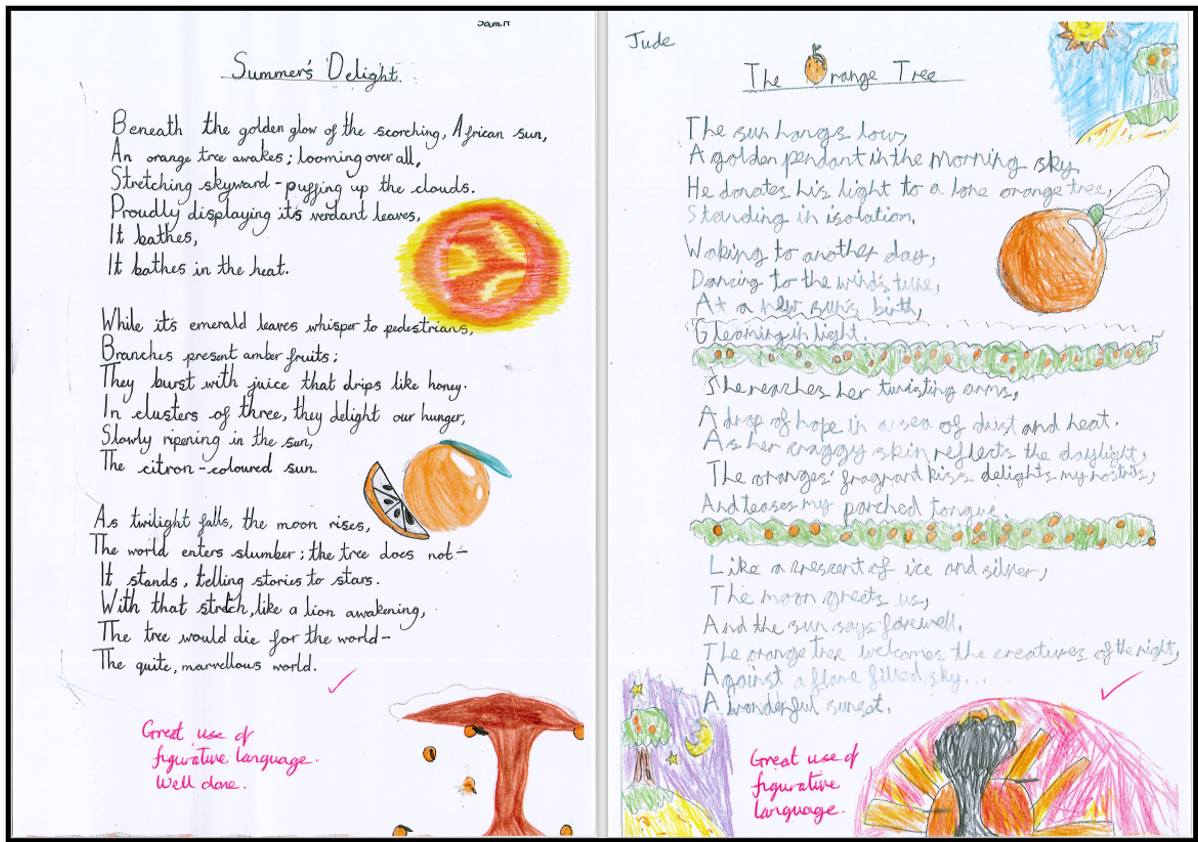 Summer's Delight.
Beneath the golden glow of the scorching, African sun,
An orange tree awakes; looming over all,
Stretching skyward - puffing up the clouds.
Proudly displaying it's verdant leaves,
It bathes,
It bathes in the heat.
While it's emerald leaves whisper to pedestrians,
Branches present amber fruits;
They burst with juice that drips like honey.
In clusters of three, they delight our hunger,
Slowly ripening in the sun,
The citron-coloured sun.
As twilight falls, the moon rises,
The world enters slumber; the tree does not-
It stands, telling stories to stars.
With that stretch, like a lion awakening,
The tree would die for the world-
The quite, marvellous world.
Great use of
figurative language.
Well done.
Jude
The Orange Tree
The sun hangs low,
A golden pendant in the morning sky.
He donates his light to a lone orange tree,
Standing in isolation.
Waking to another day,
Dancing to the wind's tune,
At a new sun's birth,
Gleaming in light.
She reaches her twisting arms,
A drop of hope in a sea of dust and heat.
As her craggy skin reflects the daylight,
The oranges' fragrant kiss delights my nostrils,
And teases my parched tongue.
Like a crescent of ice and silver,
The moon greets us,
And the sun says farewell.
The orange tree welcomes the creatures of the night,
Against a flame filled sky...
A wonderful sunset.
Great use of
figurative
language.